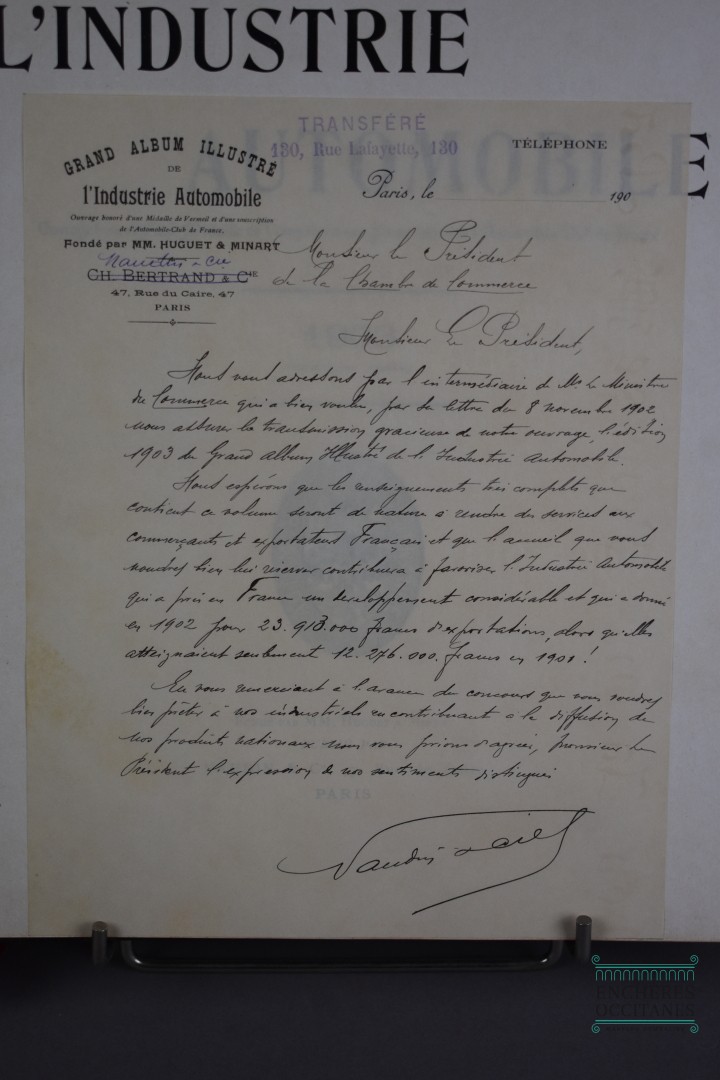 L'INDUSTRIE
AUTOMOBILE
TRANSFÉRÉ
130, Rue Lafayette, 130
TÉLÉPHONE
GRAND ALBUM ILLUSTRÉ
DE
l'Industrie Automobile
Ouvrage honoré d'une Médaille de Vermeil et d'une souscription
de l'Automobile-Club de France.
Fondé par MM. HUGUET & MINART
& Cie
CH. BERTRAND & CIE
47, Rue du Caire, 47
PARIS
Paris, le 190
Monsieur le Président
de la Chambre de Commerce
Monsieur le Président,
Nous vous adressons par l'intermédiaire de Mr le Ministre
du Commerce qui a bien voulu, par sa lettre du 8 novembre 1902
nous assurer la transmission gracieuse de notre ouvrage, l'édition
1903 du Grand album Illustré de l'Industrie Automobile.
Nous espérons que les renseignements très complets que
contient ce volume seront de nature à rendre des services aux
commerçants et exportateurs Français et que l'accueil que vous
voudrez bien lui réserver contribuera à favoriser l'Industrie Automobile
qui a pris en France un developpement considérable et qui a donné
en 1902 pour 23.913.000 francs d'exportations, alors qu'elles
atteignaient seulement 12.276.000 francs en 1901!
En vous remerciant à l'avance du concours que vous voudrez
bien prêter à nos industriels en contribuant à la diffusion de
nos produits nationaux nous vous prions d'agréer, Monsieur le
Président l'expression de nos sentiments distingués
PARIS
ENCHÈRES
OCCITANES